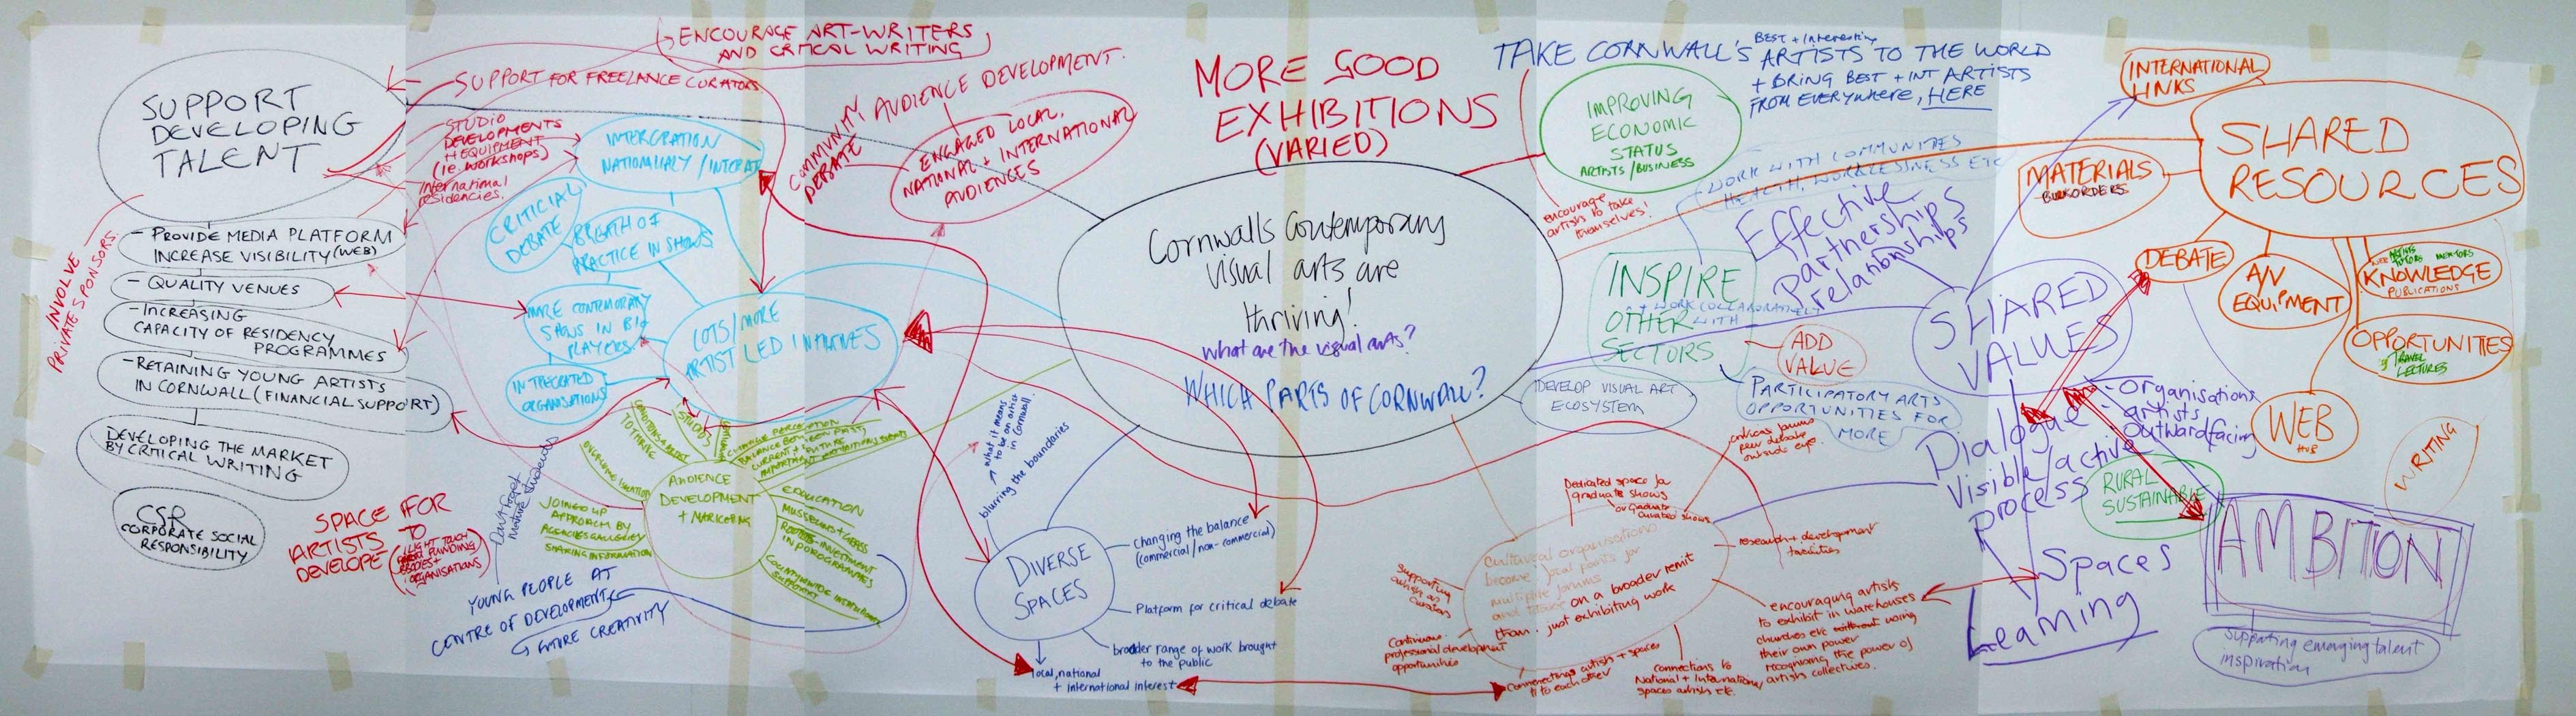 ENCOURAGE ART-WRITERS
AND CRITICAL WRITING
SUPPORT FOR FREELANCE CURATORS
SUPPORT
DEVELOPING
TALENT
- PROVIDE MEDIA PLATFORM
INCREASE VISIBILITY (WEB)
- QUALITY VENUES
- INCREASING
CAPACITY OF RESIDENCY
PROGRAMMES
- RETAINING YOUNG ARTISTS
IN CORNWALL (FINANCIAL SUPPORT)
DEVELOPING THE MARKET
BY CRITICAL WRITING
CSR
CORPORATE SOCIAL
RESPONSIBILITY
INVOLVE
PRIVATE SPONSORS.
STUDIO
DEVELOPMENTS
+ EQUIPMENT
(ie. workshops)
International
residencies.
INTERGRATION
CRITICIAL
DEBATE
BREATH OF
PRACTICE IN SHOWS
SHOWS IN BIG
PLAYERS
INTEGRATED
ORGANISATIONS
LOTS/MORE
ARTIST LED INITIATIVES
SPACE FOR
ARTISTS TO
DEVELOPE
(LIGHT TOUCH
FUNDING
BODIES +
ORGANISATIONS)
Don't forget
mature students
YOUNG PEOPLE AT
CENTRE OF DEVELOPMENT
FUTURE CREATIVITY
AUDIENCE
DEVELOPMENT
+ MARKETING
JOINED UP
APPROACH BY
SHARING INFORMATION
EDUCATION
COMMUNITY
DEBATE
AUDIENCE DEVELOPMENT.
ENGAGED LOCAL,
NATIONAL + INTERNATIONAL
AUDIENCES
MORE GOOD
EXHIBITIONS
(VARIED)
Cornwalls Contemporary
visual arts are
thriving!
what are the visual arts?
WHICH PARTS OF CORNWALL?
what it means
to be an artist
in Cornwall.
blurring the boundaries
DIVERSE
SPACES
Changing the balance
(commercial/non-commercial)
Platform for critical debate
broader range of work brought
to the public
local, national
+ international interest
TAKE CORNWALL'S ARTISTS TO THE WORLD
BEST + Interesting
+ BRING BEST + INT ARTISTS
FROM EVERYWHERE, HERE
IMPROVING
ECONOMIC
STATUS
ARTISTS/BUSINESS
encourage
artists to take
themselves!
WORK WITH COMMUNITIES
HEALTH, WORKLESSNESS ETC
Effective
partnerships
relationships
INSPIRE
+ WORK COLLABORATIVELY
OTHER WITH
SECTORS
ADD
VALUE
DEVELOP VISUAL ART
ECOSYSTEM
PARTICIPATORY ARTS
OPPORTUNITIES FOR
MORE
critical forums
peer debate
outside eye.
Dedicated space for
graduate shows
or graduate
curated shows
Cultural organisations
become focal points for
multiple forums
on a broader remit
than just exhibiting work
research + development
facilities
supporting
artists as
curators
Continuous
professional development
opportunities
Connecting artists + spaces
to each other
connections to
National + International
spaces artists etc.
encouraging artists
to exhibit in warehouses
churches etc without using
their own power
recognising the power of
artists collectives.
SHARED
VALUES
- Organisations
- artists
- outward facing
Dialogue
Visible/active
process
Spaces
Learning
RURAL
SUSTAINABLE
AMBITION
supporting emerging talent
inspiration
INTERNATIONAL
LINKS
SHARED
RESOURCES
MATERIALS
BULK ORDERS
DEBATE
A/V
EQUIPMENT
ARTISTS
TUTORS MENTORS
KNOWLEDGE
PUBLICATIONS
OPPORTUNITIES
TRAVEL
LECTURES
WEB
HUB
WRITING